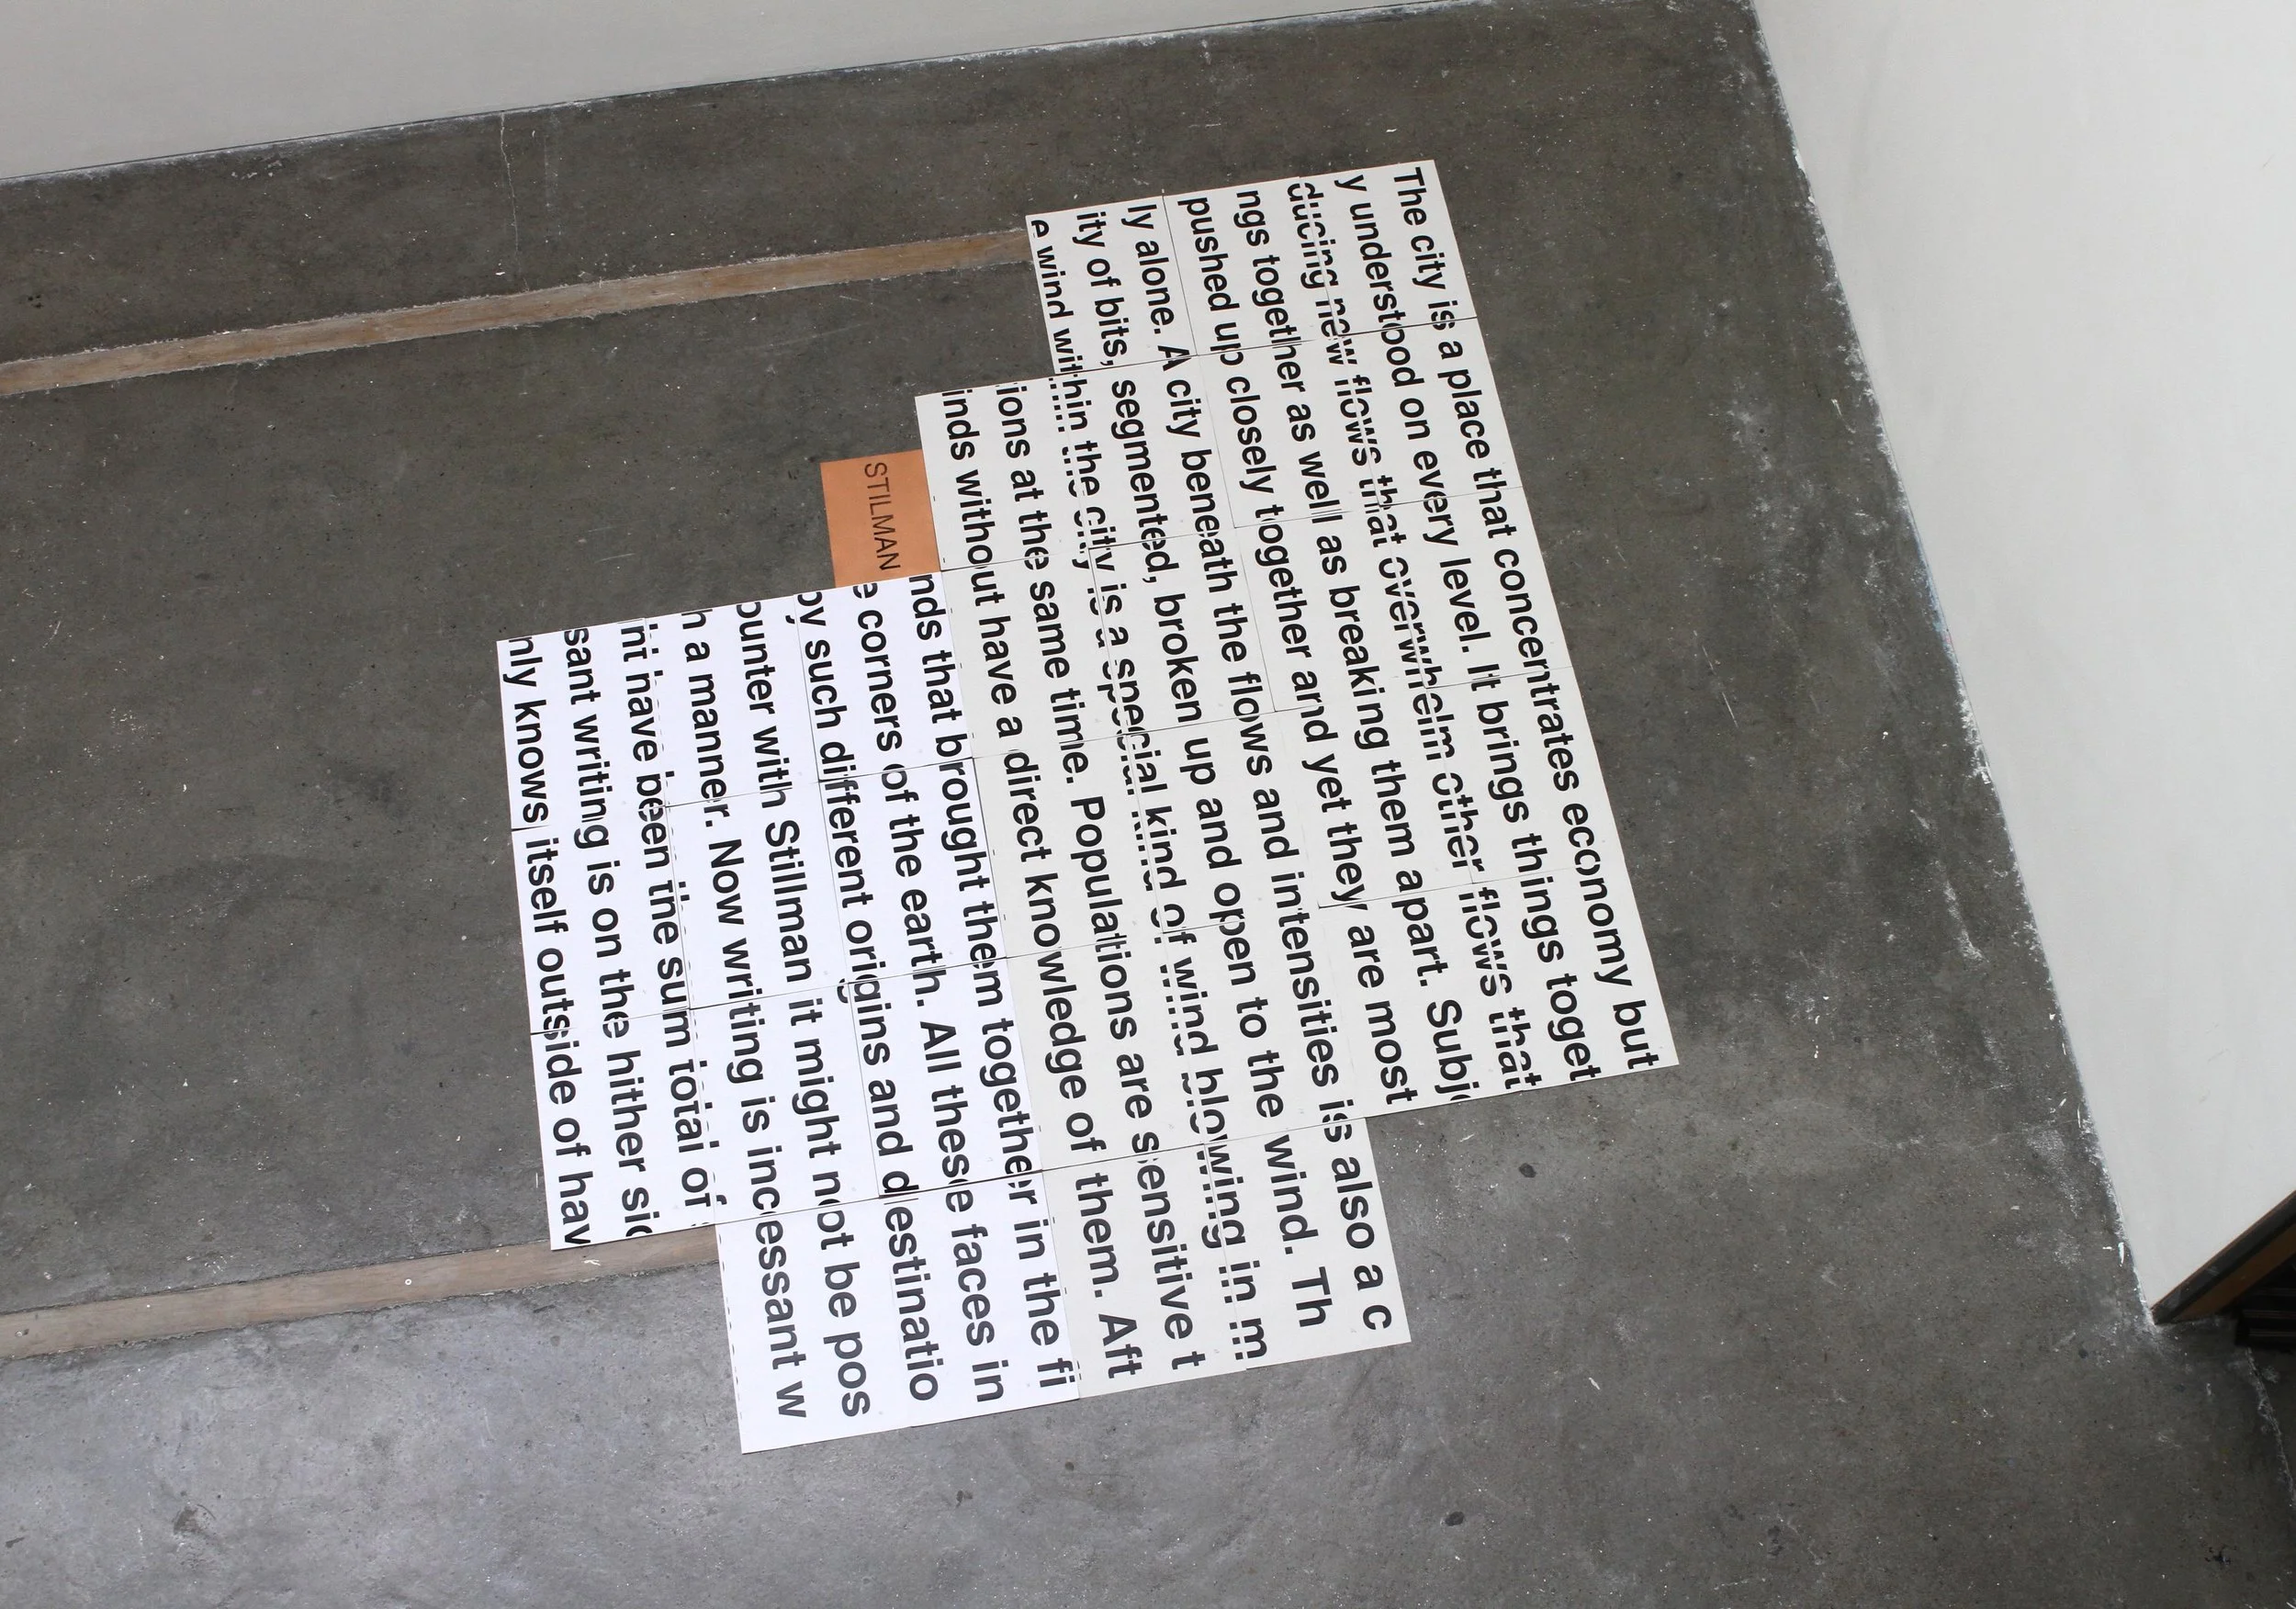 The city is a place that concentrates economy but
y understood on every level. It brings things toget
ducing new flows that overwhelm other flows that
ngs together as well as breaking them apart. Subj
pushed up closely together and yet they are most
ly alone. A city beneath the flows and intensities is also a c
ity of bits, segmented, broken up and open to the wind. Th
e wind within the city is a special kind of wind blowing in m
ions at the same time. Populations are sensitive t
inds without have a direct knowledge of them. Aft
nds that brought them together in the fi
e corners of the earth. All these faces in
by such different origins and destinatio
ounter with Stillman it might not be pos
h a manner. Now writing is incessant w
nt have been the sum total of
sant writing is on the hither sid
nly knows itself outside of hav
STILMAN